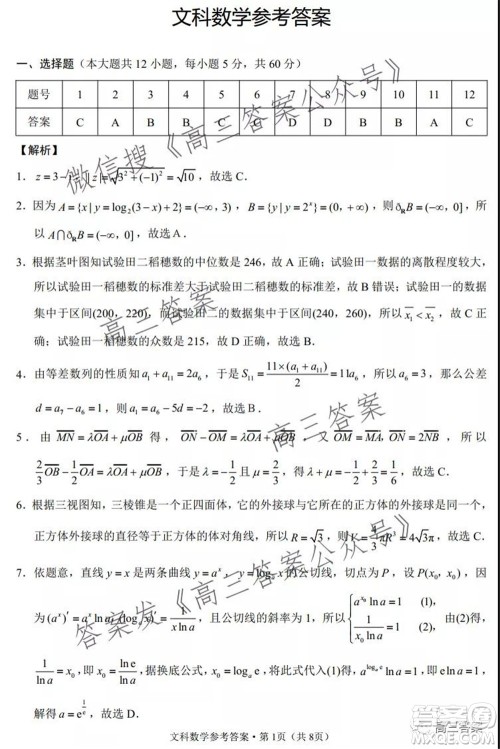 文科数学参考答案
一、选择题（本大题共 12 小题，每小题 5 分，共 60 分）
题号 1 2 3 4 5 6 7 8 9 10 11 12
答案 C A B B C C D D B B B C
【解析】
1．z=3-i，|z|=√(3²+(-1)²)=√10，故选 C．
2．因为 A={x|y=log₂(3-x)+2}=(-∞，3)，B={y|y=2ˣ}=(0，+∞)，则 ð_R B=(-∞，0]，所
以 A∩ð_R B=(-∞，0]，故选 A．
3．根据茎叶图知试验田二稻穗数的中位数是 246，故 A 正确；试验田一数据的离散程度较大，
所以试验田一稻穗数的标准差大于试验田二稻穗数的标准差，故 B 错误；试验田一的数据
集中于区间(200，220)，而试验田二的数据集中于区间(240，260)，所以 x̄₁<x̄₂，故 C 正
确；试验田一稻穗数的众数是 215，故 D 正确，故选 B．
4．由等差数列的性质知 a₁+a₁₁=2a₆，于是 S₁₁=11×(a₁+a₁₁)/2=11a₆，所以 a₆=3，那么公差
d=a₇-a₆=1，则 a₁=a₆-5d=-2，故选 B．
5．由 MN=λOA+μOB 得，ON-OM=λOA+μOB，又 OM=MA，ON=2NB，所以
2/3 OB-1/2 OA=λOA+μOB，于是 λ=-1/2 且 μ=2/3，得 λ+μ=1/6，故选 C．
6．根据三视图知，三棱锥是一个正四面体，它的外接球与它所在的正方体的外接球是同一个，
正方体外接球的直径等于正方体的体对角线，所以 R=√3，则 V=4/3 πR³=4√3π，故选 C．
7．依题意，直线 y=x 是两条曲线 y=aˣ，y=logₐx 的公切线，切点为 P，设 P(x₀，x₀)，因
为(aˣ)′=aˣ ln a，(logₐx)′=1/(x ln a)，且公切线的斜率为 1，所以 {a^(x₀) ln a=1 (1)，1/(x₀ ln a)=1 (2)，由(2)得，
1/ln a=x₀，即 ln e/ln a=x₀，据换底公式，x₀=logₐe，将此式代入(1)得，a^(logₐe) ln a=1，即 e ln a=1，
解得 a=e^(1/e)，故选 D．
文科数学参考答案·第 1 页（共 8 页）
微信搜《高三答案公众号》
高三答案
高三答案
答案发《高三答案公众号》
高三答案